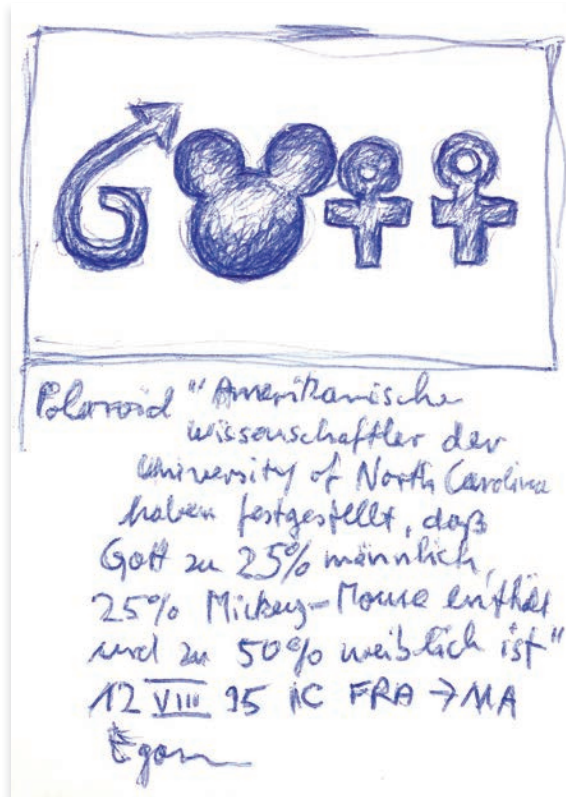 GOTT
Polaroid "Amerikanische
Wissenschaftler der
University of North Carolina
haben festgestellt, daß
Gott zu 25% männlich,
25% Mickey-Mouse enthält
und zu 50% weiblich ist"
12 VIII 95 IC FRA → MA
Egon